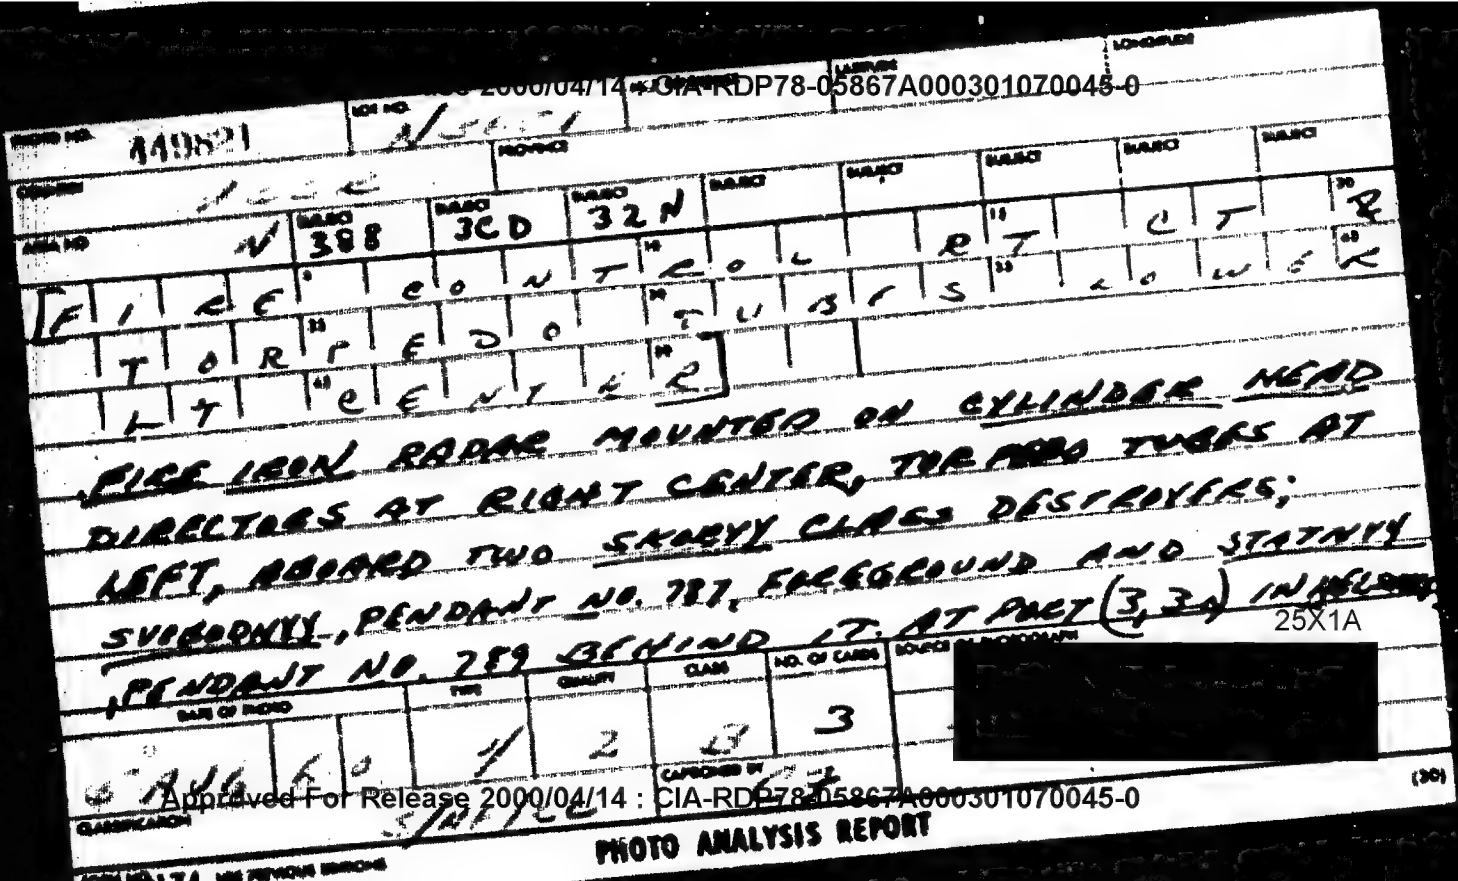 LONGITUDE
LATITUDE
2000/04/14 : CIA-RDP78-05867A000301070045-0
PHOTO NO. 449821 LOC NO.
COUNTRY PROVINCE
AREA NO N SUBJECT 388 SUBJECT 3CD SUBJECT 32N SUBJECT SUBJECT SUBJECT SUBJECT SUBJECT
[FIRE CONTROL RT CT R
TORPEDO TUBES LOWER
LT CENTER]
FIRE IRON RADAR MOUNTED ON CYLINDER HEAD
DIRECTORS AT RIGHT CENTER, TORPEDO TUBES AT
LEFT, ABOARD TWO SKORYY CLASS DESTROYERS;
SVOBODNYY, PENDANT NO. 787, FOREGROUND AND STATNYY
, PENDANT NO. 789 BEHIND IT. AT PORT (3,3N) IN
25X1A
DATE OF PHOTO TYPE QUALITY CLASS NO. OF CARDS SOURCE OF PHOTOGRAPH
AUG 60 2 B 3
CAPTIONED BY
(30)
Approved For Release 2000/04/14 : CIA-RDP78-05867A000301070045-0
CLASSIFICATION
PHOTO ANALYSIS REPORT
USE PREVIOUS EDITIONS